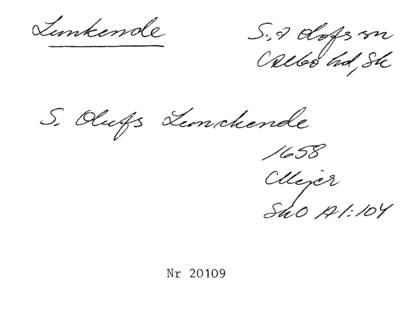 Lunkende
S:t Olofs sn
Albo hd, Sk
S. Olufs Lunckende
1658
Meijer
SkO A1:104
Nr 20109